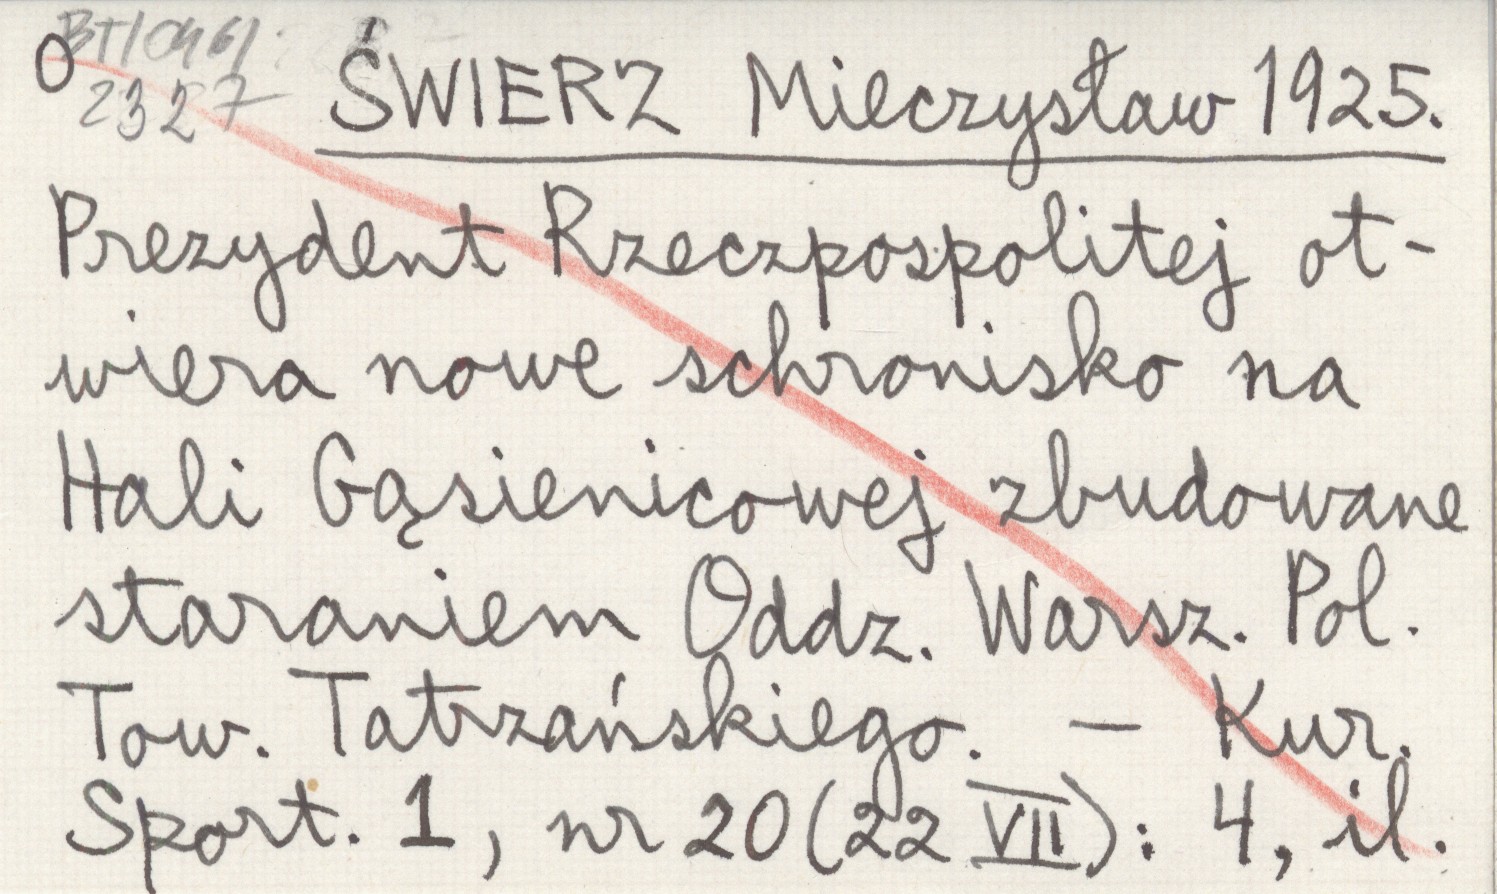 O ŚWIERZ Mieczysław 1925.
2327
Prezydent Rzeczpospolitej ot-
wiera nowe schronisko na
Hali Gąsienicowej zbudowane
staraniem Oddz. Warsz. Pol.
Tow. Tatrzańskiego. — Kur.
Sport. 1, nr 20 (22 VII): 4, il.